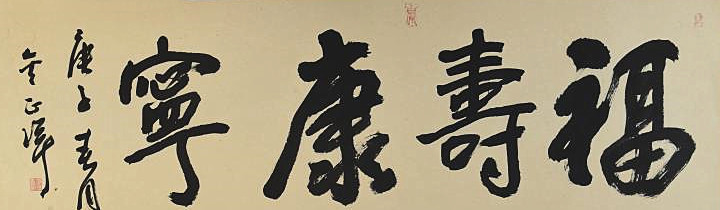 福壽康寧
庚子春月
金正暉